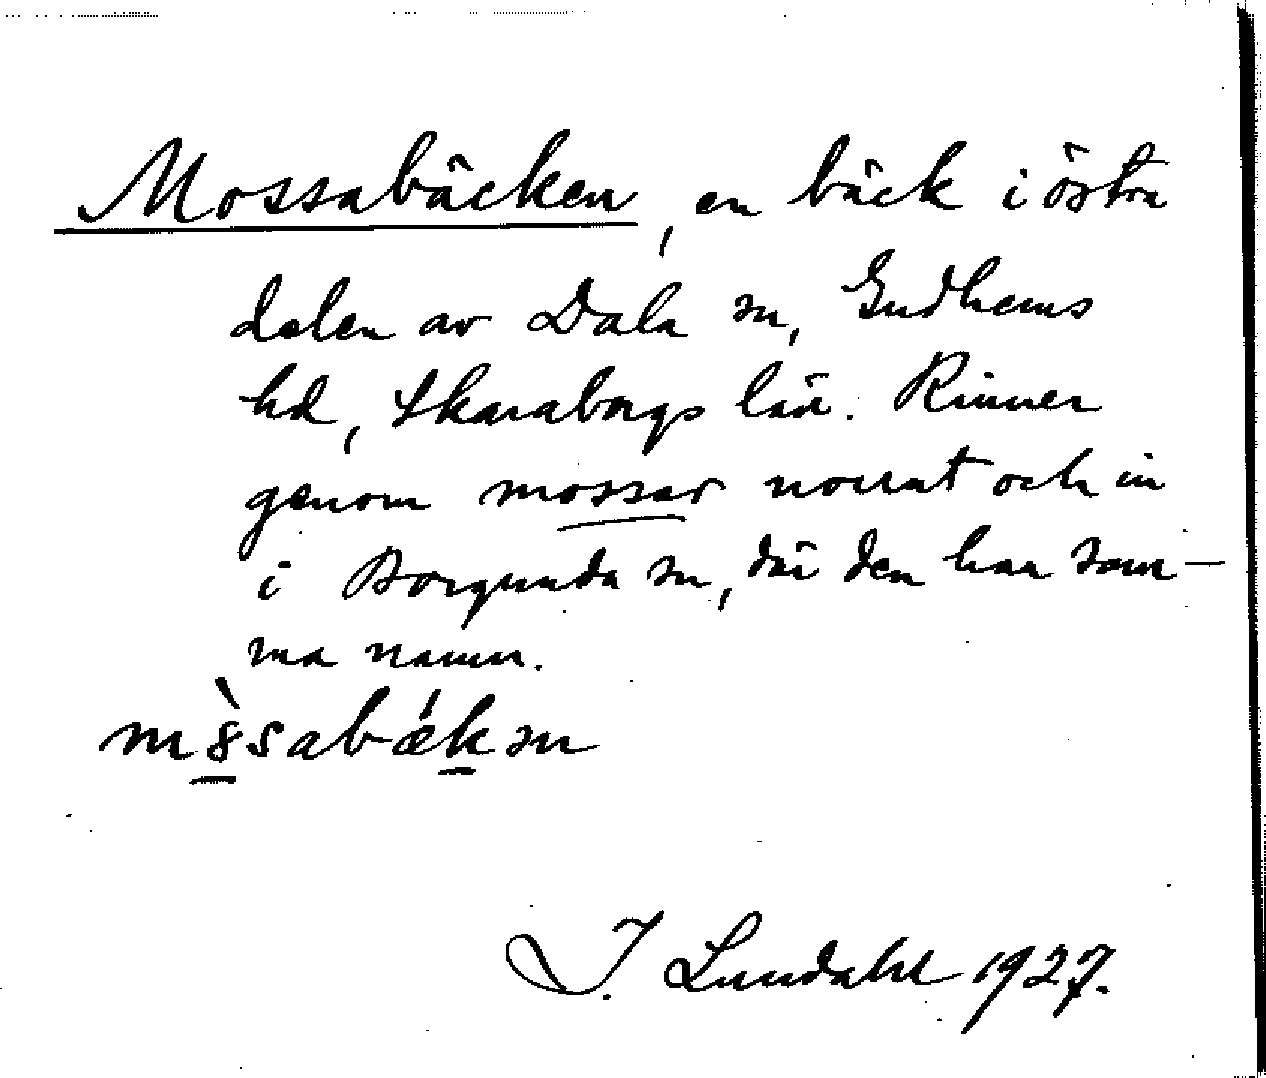 Mossabäcken, en bäck i östra
delen av Dala sn, Gudhems
hd, Skaraborgs län. Rinner
genom mossar norrut och in
i Borgunda sn, där den har sam-
ma namn.
mòssabǽkən
I. Lundahl 1927.